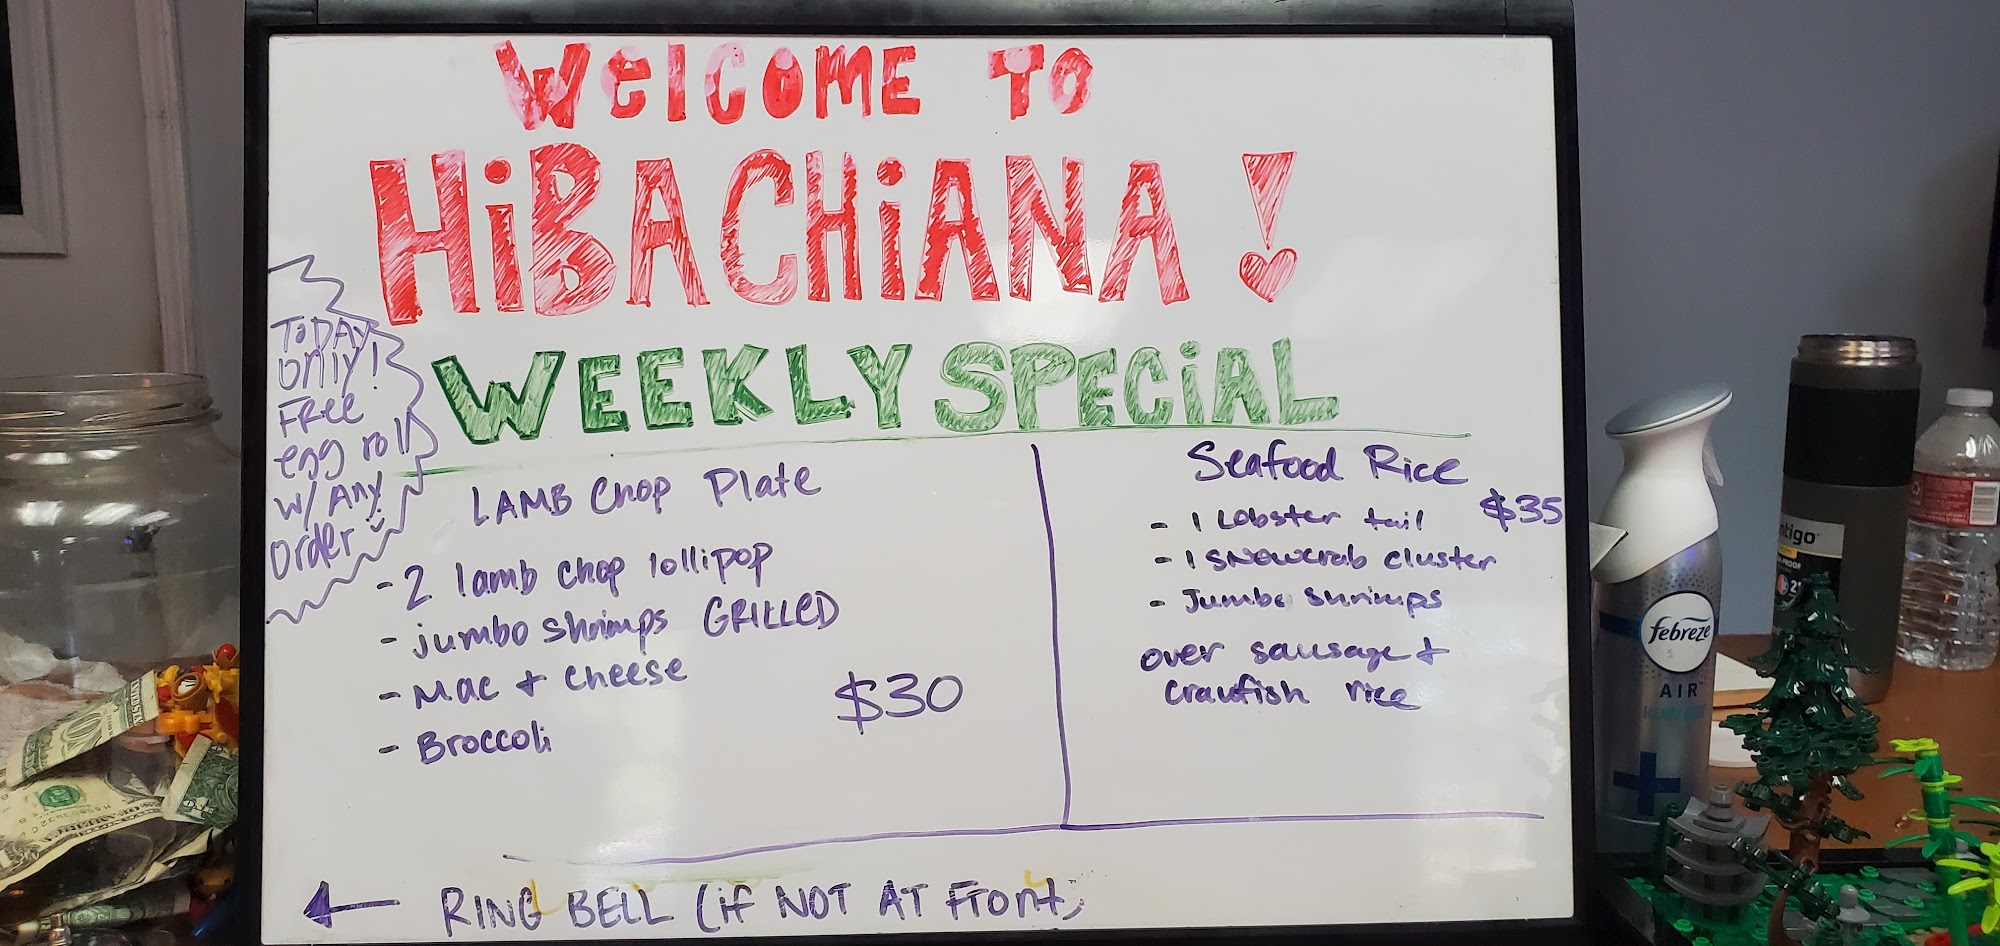 WelCOME TO
HiBACHiANA!
WEEKLY SPECiAL
TODAY
only!
FRee
egg roll
w/ Any
order
LAMB Chop Plate
- 2 lamb chop lollipop
- jumbo shrimps GRILLED
- Mac + cheese
- Broccoli
$30
Seafood Rice
$35
- 1 Lobster tail
- 1 snowcrab cluster
- Jumbo shrimps
over sausage +
crawfish rice
RING BELL (if NOT AT Front)
febreze
AIR
ntigo